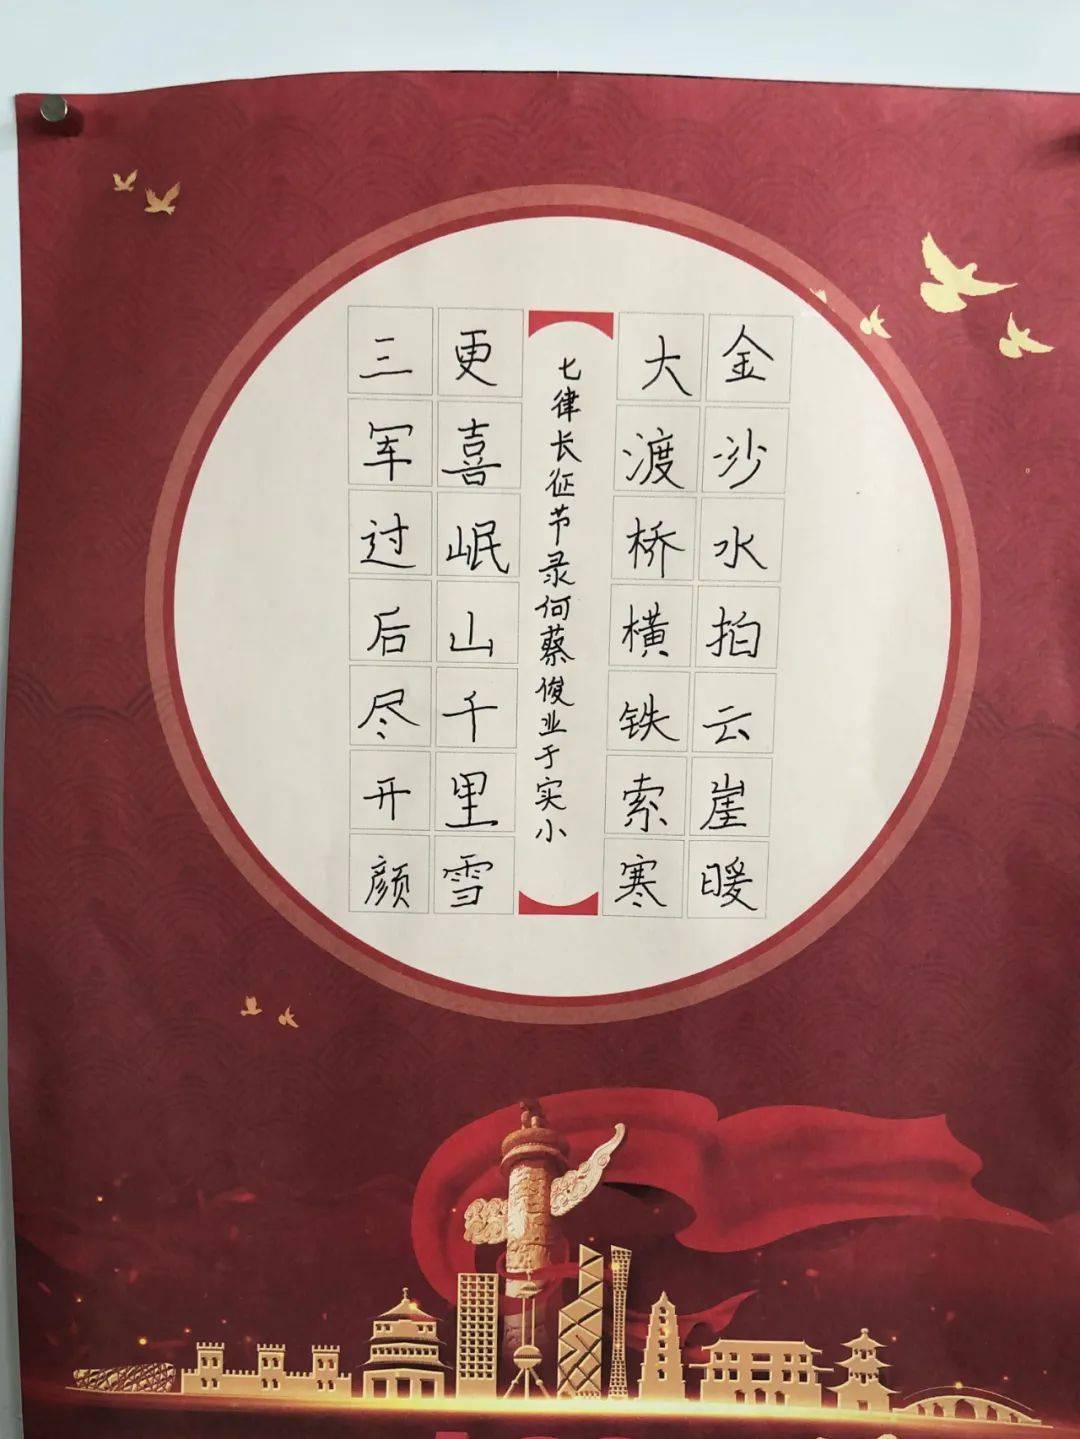 金沙水拍云崖暖
大渡桥横铁索寒
七律长征节录何蔡俊业于实小
更喜岷山千里雪
三军过后尽开颜